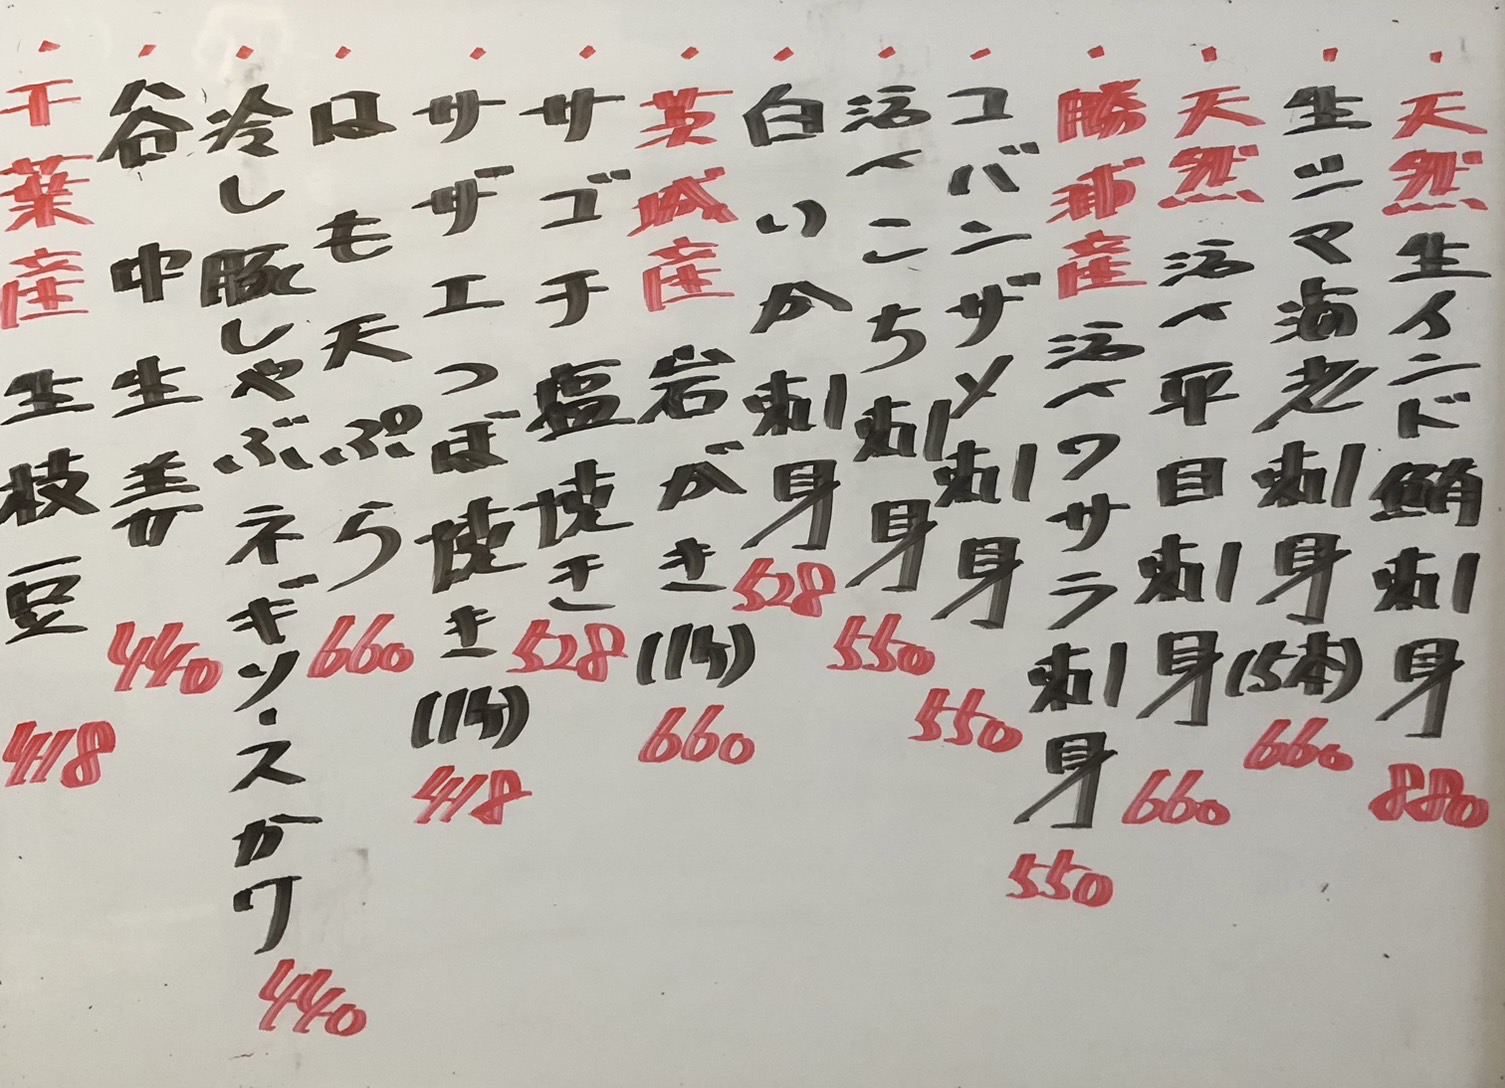 ・天然生インド鮪刺身 880
・生シマ海老刺身(5本) 660
・天然活〆平目刺身 660
・勝浦産活〆ワサラ刺身 550
・コバンザメ刺身 550
・活〆こち刺身 550
・白いか刺身 528
・茨城産岩がき(1ヶ) 660
・サゴチ塩焼き 528
・サザエつぼ焼き(1ヶ) 418
・はも天ぷら 660
・冷し豚しゃぶネギソ・スカワ 440
・谷中生姜 440
・千葉産生枝豆 418